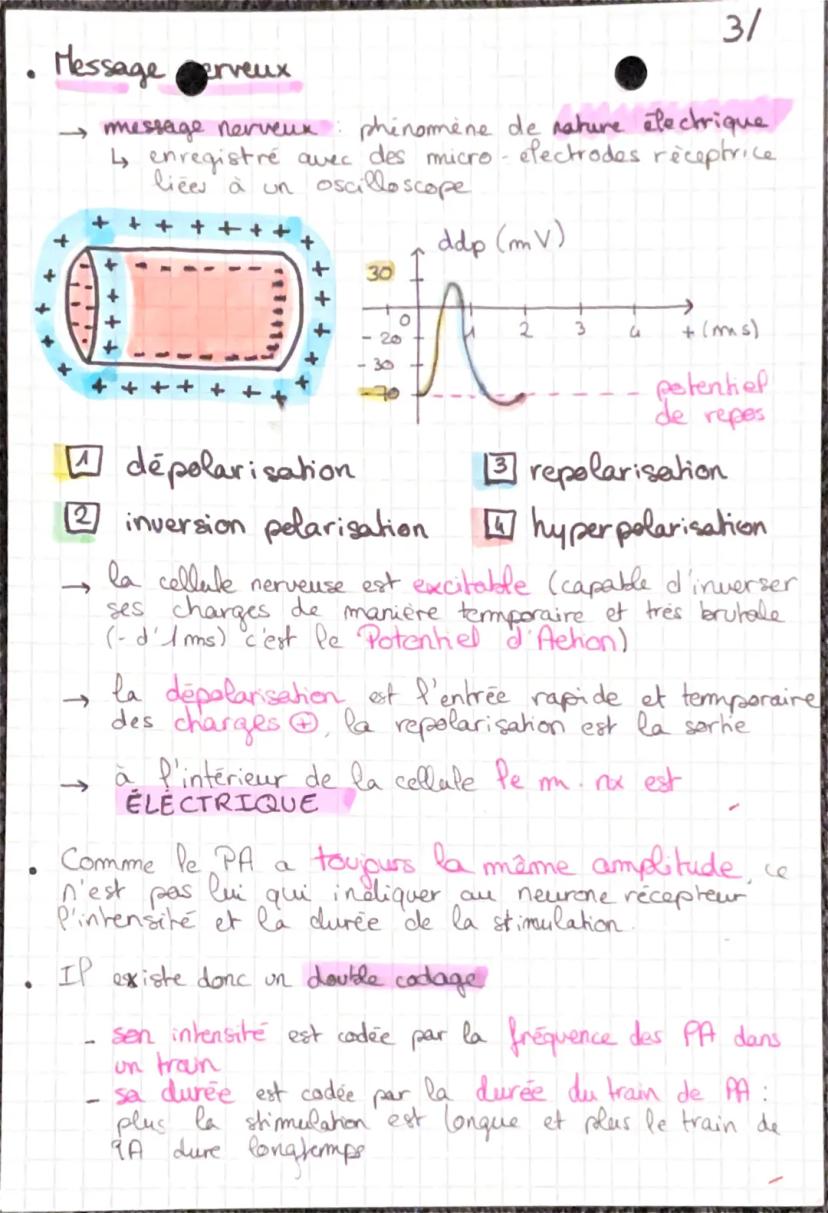 3/
• Message nerveux
→ message nerveux : phénomène de nature électrique
↳ enregistré avec des micro-électrodes réceptrice
liées à un oscilloscope
ddp (mV)
30
0
1 2 3 4 t (ms)
- 20
- 30
- 70
potentiel
de repos
1 dépolarisation
3 repolarisation
2 inversion polarisation
4 hyperpolarisation
→ la cellule nerveuse est excitable (capable d'inverser
ses charges de manière temporaire et très brutale
(- d'1ms) c'est le Potentiel d'Action)
→ la dépolarisation est l'entrée rapide et termporaire
des charges ⊕, la repolarisation est la sortie
→ à l'intérieur de la cellule le m. nx est
ÉLÉCTRIQUE
• Comme le PA a toujours la même amplitude, ce
n'est pas lui qui indiquer au neurone récepteur
l'intensité et la durée de la stimulation.
• Il existe donc un double codage
- son intensité est codée par la fréquence des PA dans
un train
- sa durée est codée par la durée du train de PA :
plus la stimulation est longue et plus le train de
PA dure longtemps